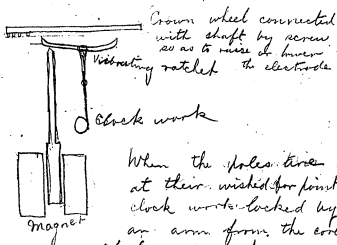 Crown wheel connected
with shaft by screw
so as to raise or lower
the electrode
Vibrating ratchet
Clock work
When the poles
at their wished for point
clock work locked by
an arm from the core
Magnet